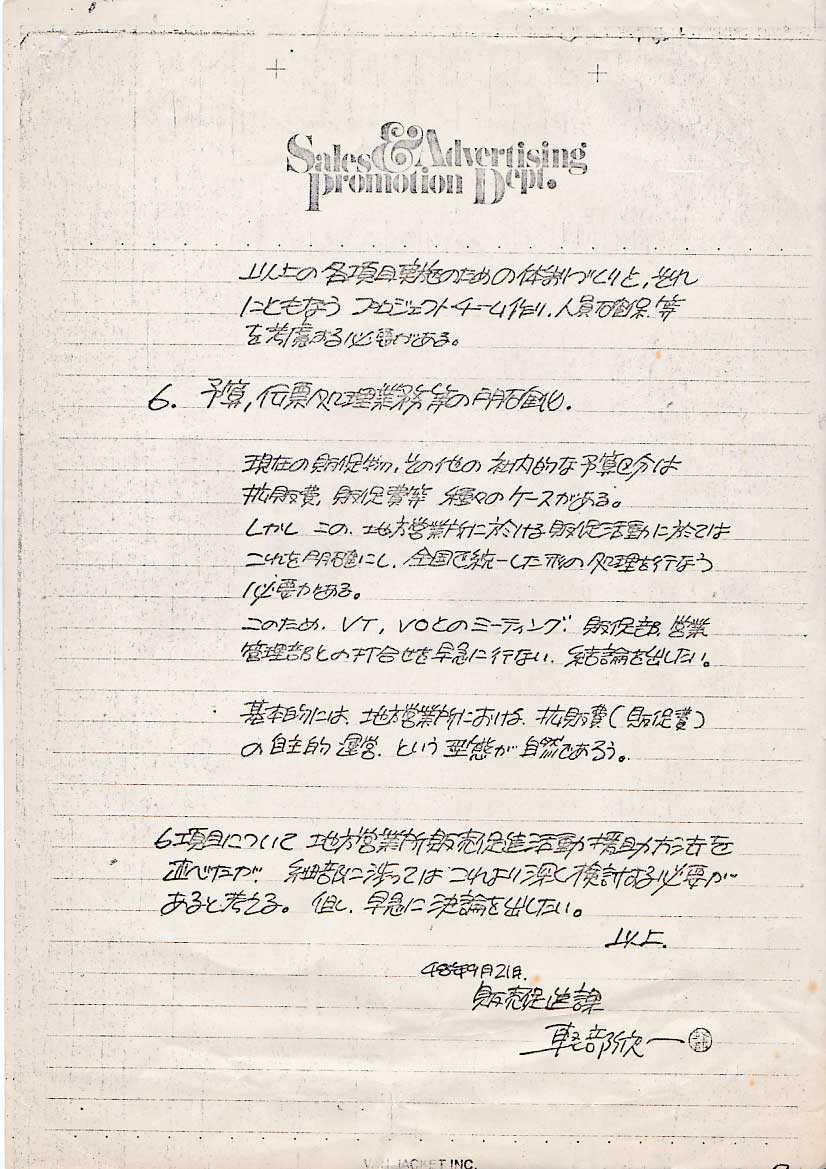 Sales & Advertising
promotion Dept.
以上の各項目実施のための体制づくりと、それ
にともなう プロジェクトチーム作り、人員確保 等
を考慮する必要がある。
6. 予算, 伝票処理業務等の明確化.
現在の販促物, その他の 社内的な予算区分は
拡販費, 販促費等 種々のケースがある。
しかし この、地方営業所に於ける販促活動に於ては
これを明確にし、全国で統一した形の処理を行なう
必要がある。
このため、VT, VOとのミーティング、販促部、営業
管理部との打合せを早急に行ない、結論を出したい。
基本的には、地方営業所における、拡販費(販促費)
の自主的 運営、という 型態が自然であろう。
6項目について 地方営業所販売促進活動援助方法を
述べたが 細部に渉っては これより深く検討する必要が
あると考える。 但し、早急に決論を出したい。
以上.
48年9月21日.
販売促進課
軽部欣一
VAN JACKET INC.